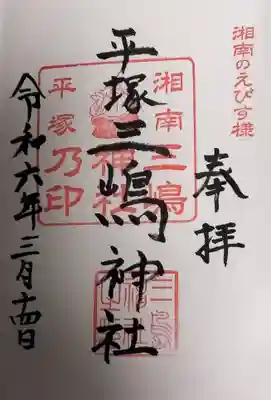 湘南のえびす様
奉拝
湘南三嶋
神社
平塚乃印
平塚三嶋神社
令和六年三月十四日